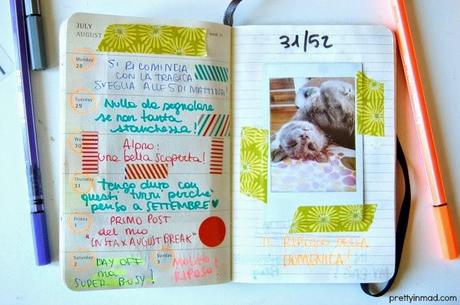 JULY
AUGUST
Monday
28
SI RICOMINCIA
CON LA TRAGICA
SVEGLIA ALLE 5 DI MATTINA!
Tuesday
29
Nulla da segnalare
se non tanta
stanchezza!
30
Alpro:
una bella scoperta!
Thursday
31
Tengo duro con
questi turni perché
penso a SETTEMBRE
Friday
1
PRIMO POST
del mio
"INSTAX AUGUST BREAK"
2
DAY OFF
ma
SUPER BUSY!
3
Molto
RIPOSO!
31/52
IL RIPOSO DELLA
DOMENICA!
prettyinmad.com